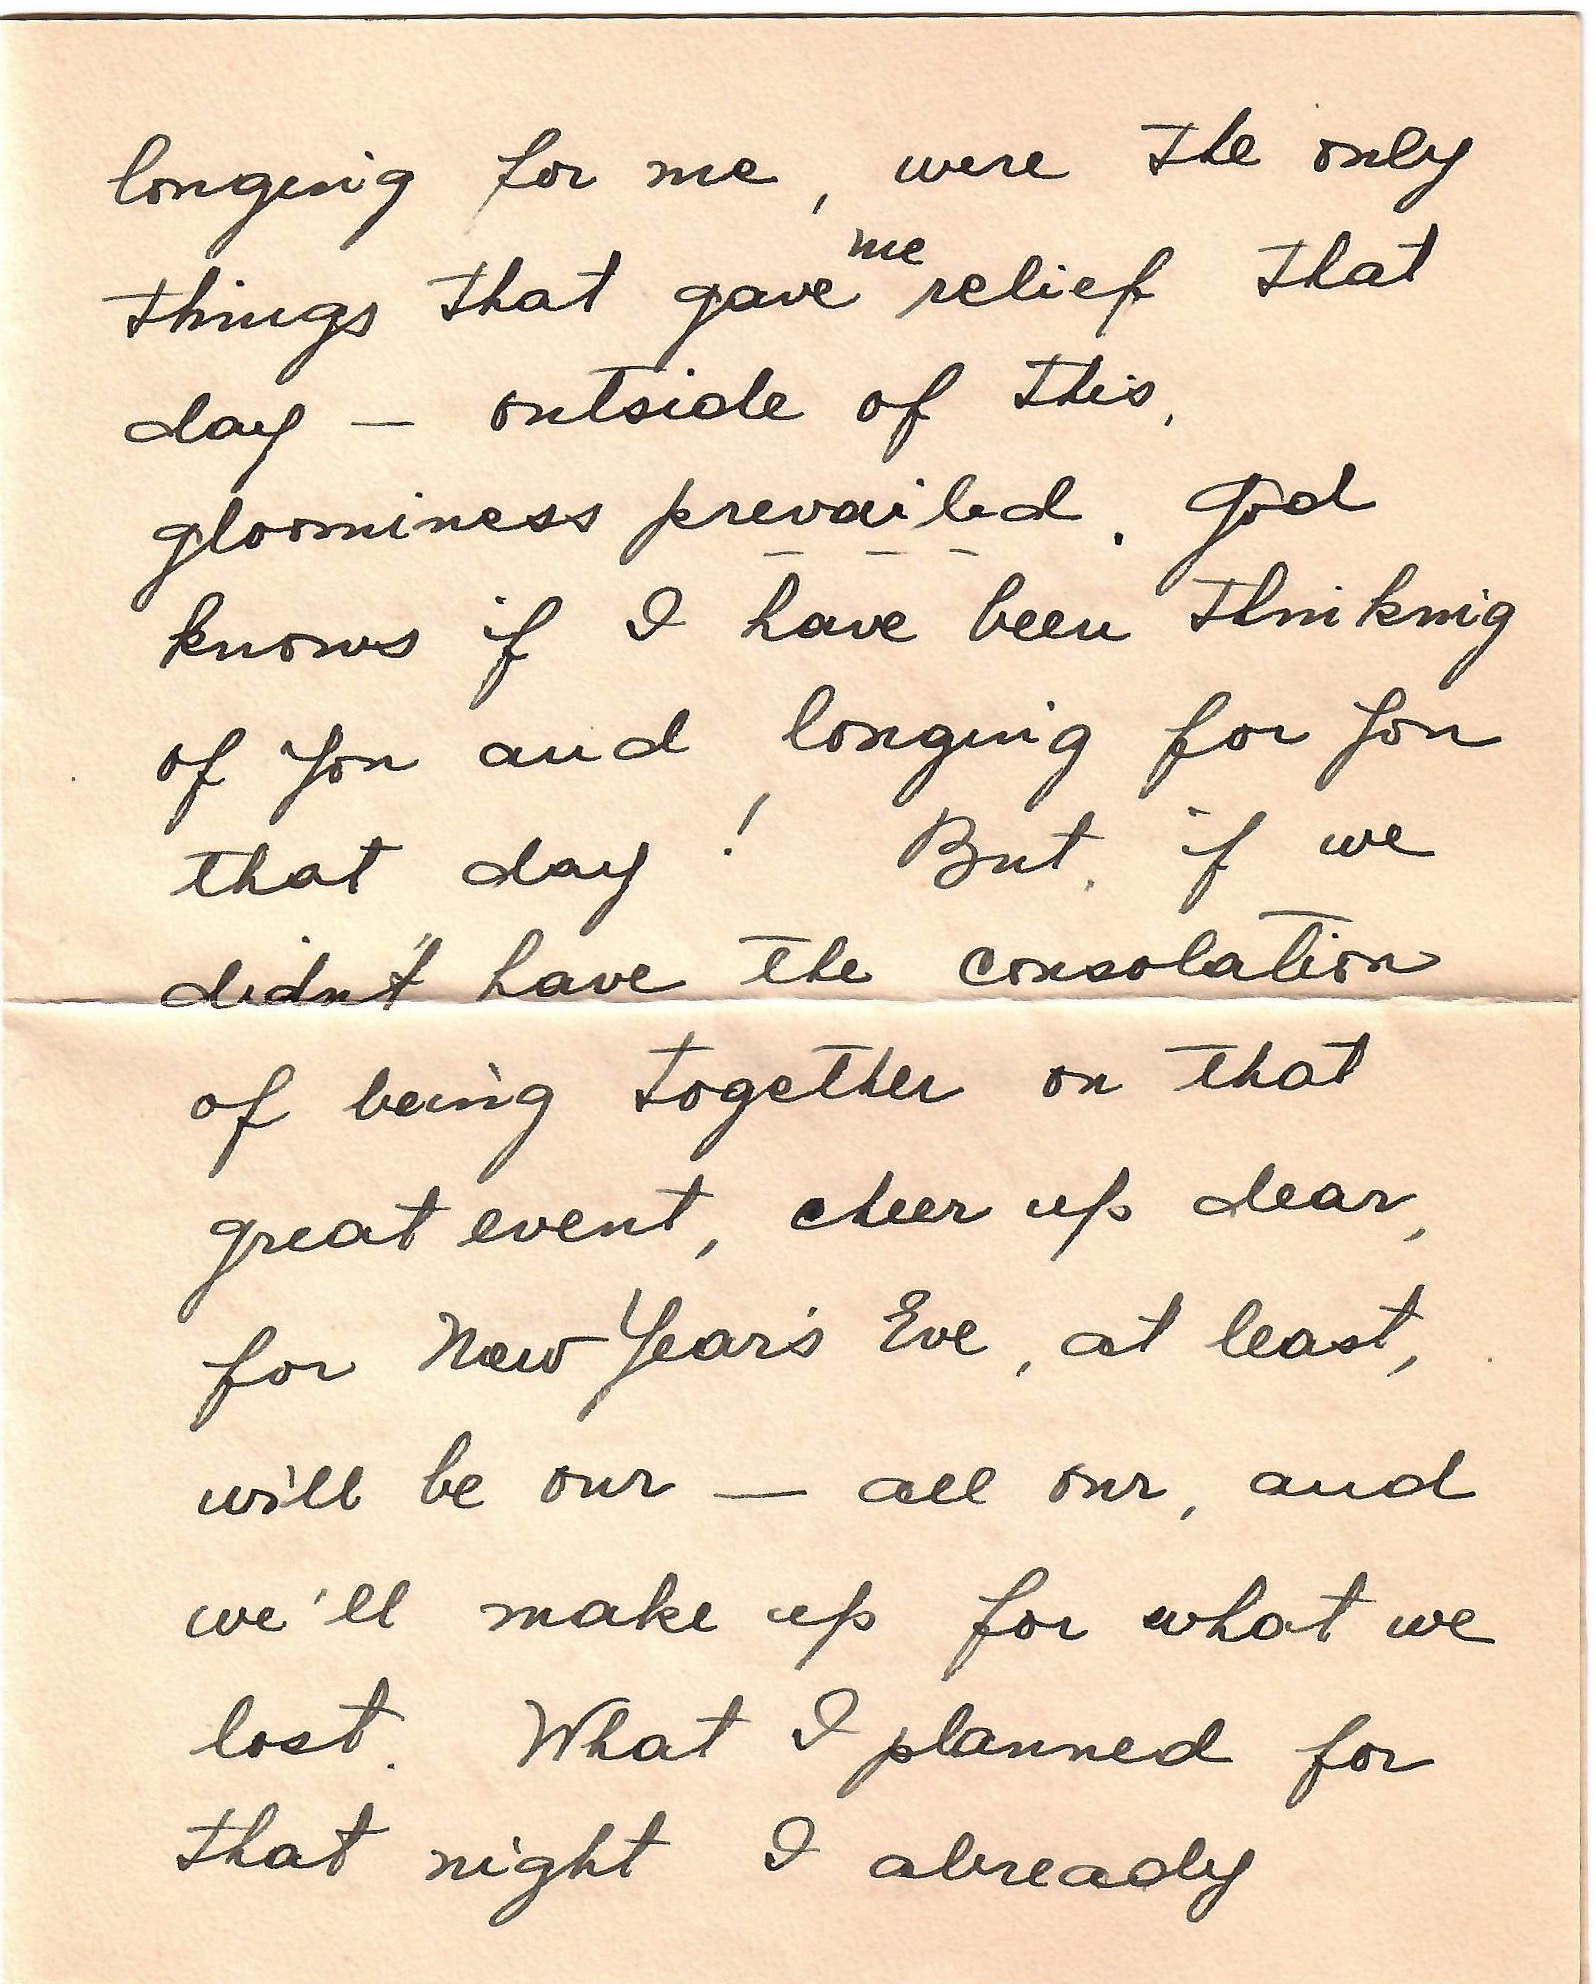 longing for me, were the only
things that gave me relief that
day — outside of this,
gloominess prevailed. God
knows if I have been thinking
of you and longing for you
that day! But, if we
didn't have the consolation
of being together on that
great event, cheer up dear,
for New Year's Eve, at least,
will be our — all our, and
we'll make up for what we
lost. What I planned for
that night I already